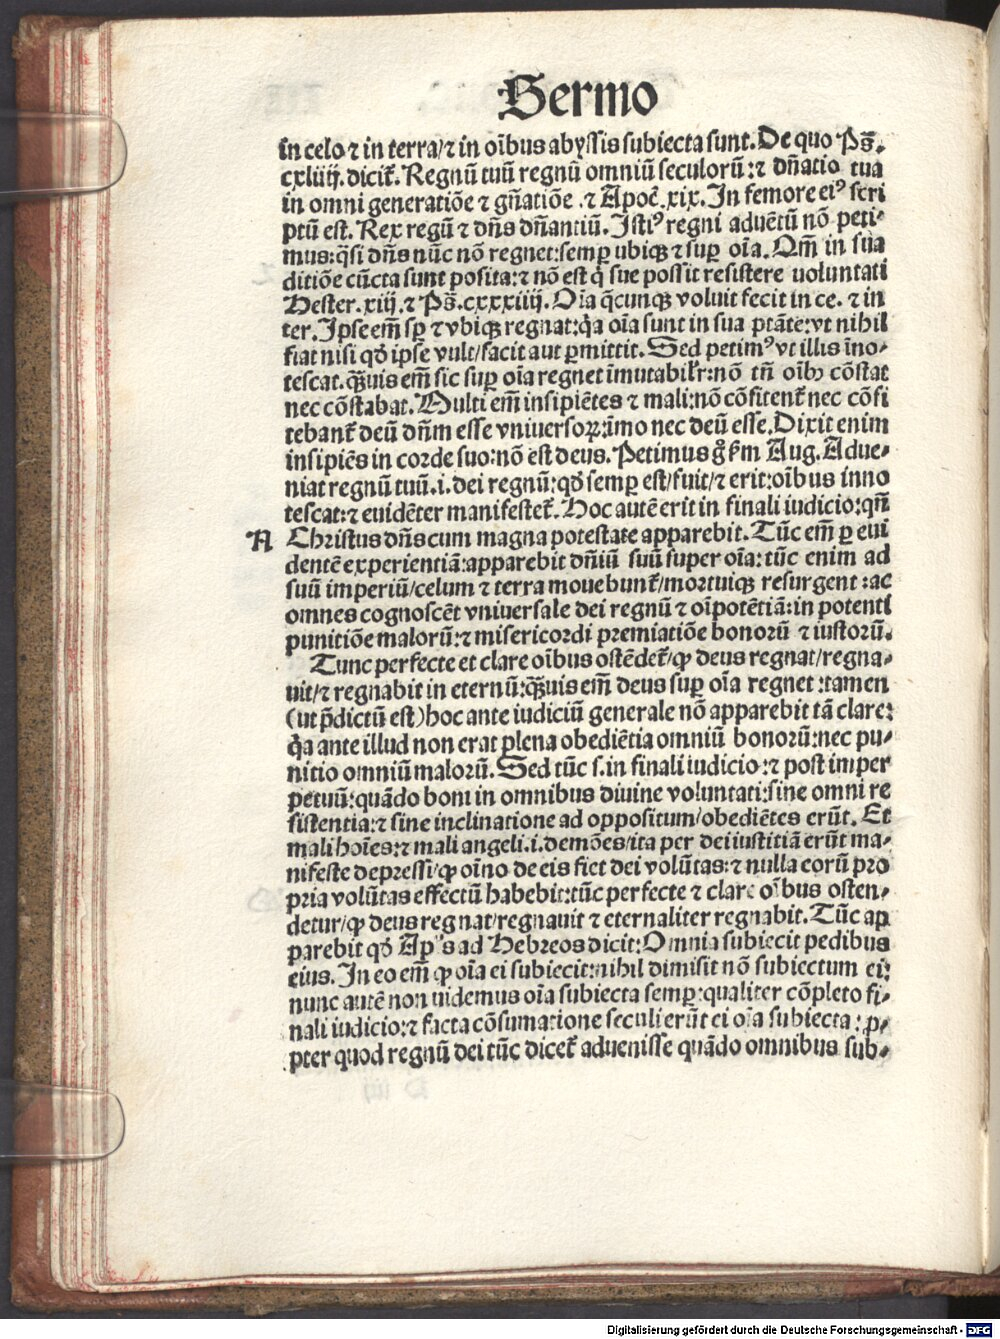 Sermo
in celo ⁊ in terra/⁊ in oībus abyssis subiecta sunt. De quo Ps̄.
cxliiij. dicit̃. Regnū tuū regnū omniū seculorū: ⁊ dn̄atio tua
in omni generatiōe ⁊ gn̄atiōe . ⁊ Apoc̄. xix. In femore eiꝰ scri
ptū est. Rex regū ⁊ dn̄s dn̄antiū. Istiꝰ regni aduētū nō peti⸗
mus: q̄si dn̄s nūc nō regnet: semꝑ ubiqꝫ ⁊ suꝑ oīa. Qm̄ in sua
ditiōe cūcta sunt posita: ⁊ nō est q̇ sue possit resistere uoluntati
Hester. xiij. ⁊ Ps̄. cxxxiiij. Oīa q̄cunqꝫ voluit fecit in ce. ⁊ in
ter. Ipse em̄ sꝑ ⁊ vbiqꝫ regnat: q̇a oīa sunt in sua ptāte: vt nihil
fiat nisi qd̓ ipse vult/facit aut ꝑmittit. Sed petimꝰ vt illis īno⸗
tescat. qꝫuis em̄ sic suꝑ oīa regnet īmutabilr̄: nō tn̄ oībꝫ cōstat
nec cōstabat. Multi em̄ insipiētes ⁊ mali: nō cōfitent̃ nec cōfi
tebant̃ deū dn̄m esse vniuersoꝝ: īmo nec deū esse. Dixit enim
insipiēs in corde suo: nō est deus. Petimus g̊ ẜm Aug. Adue⸗
niat regnū tuū .i. dei regnū: qd̓ semꝑ est/fuit/⁊ erit: oībus inno
tescat: ⁊ euidēter manifestet̃. Hoc autē erit in finali iudicio: qn̄
A Christus dn̄s cum magna potestate apparebit. Tūc em̄ ꝑ eui
dentē experientiā: apparebit dn̄iū suū super oīa: tūc enim ad
suū imperiū/celum ⁊ terra mouebunt̃/mortuiqꝫ resurgent: ac
omnes cognoscēt vniuersale dei regnū ⁊ oīpotētiā: in potenti
punitiōe malorū: ⁊ misericordi premiatiōe bonorū ⁊ iustorū.
Tunc perfecte et clare oībus ostēdet̃/ꝙ deus regnat/regna⸗
uit/⁊ regnabit in eternū: qꝫuis em̄ deus suꝑ oīa regnet: tamen
(ut p̄dictū est) hoc ante iudiciū generale nō apparebit tā clare:
q̇a ante illud non erat plena obediētia omniū bonorū: nec pu⸗
nitio omniū malorū. Sed tūc s. in finali iudicio: ⁊ post in ꝑper
petuū: quādo boni in omnibus diuine voluntati: sine omni re
sistentia: ⁊ sine inclinatione ad oppositum/obediētes erūt. Et
mali hoīes: ⁊ mali angeli .i. demōes/ita per dei iustitiā erūt ma⸗
nifeste depressi/ꝙ oīno de eis fiet dei volūtas: ⁊ nulla eorū pro
pria volūtas effectū habebit: tūc perfecte ⁊ clare oībus osten⸗
detur/ꝙ deus regnat/regnauit ⁊ eternaliter regnabit. Tūc ap
parebit qd̓ Apꝰs ad Hebreos dicit: Omnia subiecit pedibus
eius. In eo em̄ ꝙ oīa ei subiecit: nihil dimisit nō subiectum ei:
nunc autē non uidemus oīa subiecta semꝑ: qualiter cōpleto fi⸗
nali iudicio: ⁊ facta cōsumatione seculi erūt ei oīa subiecta: ꝓ⸗
pter quod regnū dei tūc dicet̃ aduenisse quādo omnibus sub⸗
Digitalisierung gefördert durch die Deutsche Forschungsgemeinschaft - DFG